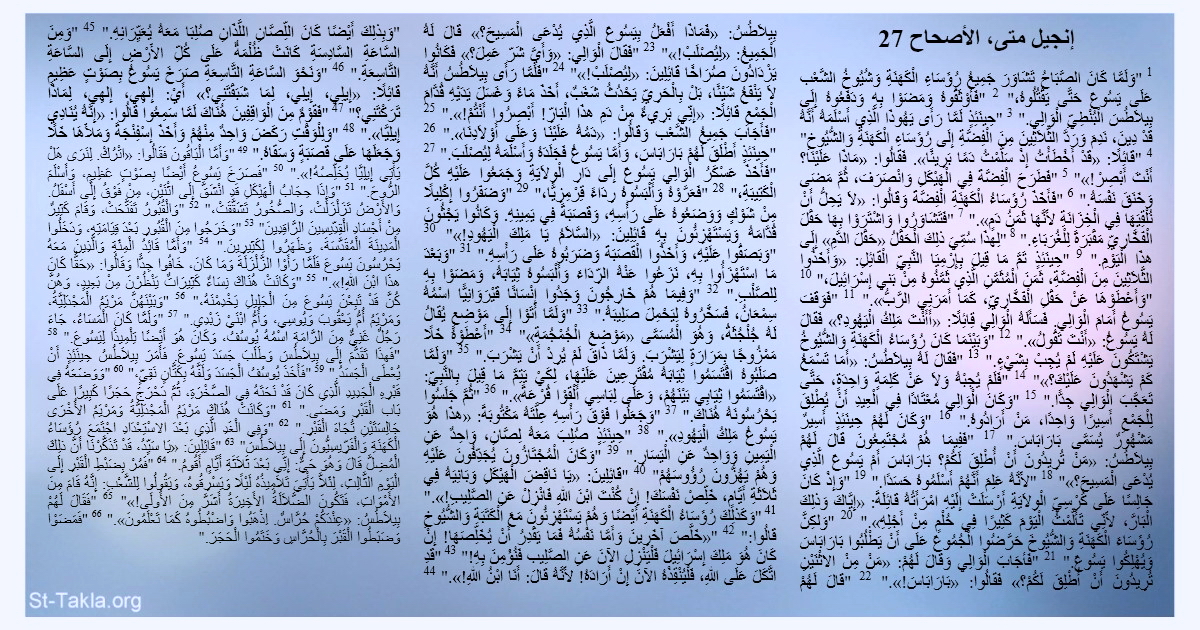 إنجيل متى، الأصحاح 27
1 "وَلَمَّا كَانَ الصَّبَاحُ تَشَاوَرَ جَمِيعُ رُؤَسَاءِ الْكَهَنَةِ وَشُيُوخُ الشَّعْبِ
عَلَى يَسُوعَ حَتَّى يَقْتُلُوهُ،" 2 "فَأَوْثَقُوهُ وَمَضَوْا بِهِ وَدَفَعُوهُ إِلَى
بِيلاَطُسَ الْبُنْطِيِّ الْوَالِي." 3 "حِينَئِذٍ لَمَّا رَأَى يَهُوذَا الَّذِي أَسْلَمَهُ أَنَّهُ
قَدْ دِينَ، نَدِمَ وَرَدَّ الثَّلاَثِينَ مِنَ الْفِضَّةِ إِلَى رُؤَسَاءِ الْكَهَنَةِ وَالشُّيُوخِ"
4 "قَائِلاً: «قَدْ أَخْطَأْتُ إِذْ سَلَّمْتُ دَمًا بَرِيئًا». فَقَالُوا: «مَاذَا عَلَيْنَا؟
أَنْتَ أَبْصِرْ!»" 5 "فَطَرَحَ الْفِضَّةَ فِي الْهَيْكَلِ وَانْصَرَفَ، ثُمَّ مَضَى
وَخَنَقَ نَفْسَهُ." 6 "فَأَخَذَ رُؤَسَاءُ الْكَهَنَةِ الْفِضَّةَ وَقَالُوا: «لاَ يَحِلُّ أَنْ
نُلْقِيَهَا فِي الْخِزَانَةِ لأَنَّهَا ثَمَنُ دَمٍ»." 7 "فَتَشَاوَرُوا وَاشْتَرَوْا بِهَا حَقْلَ
الْفَخَّارِيِّ مَقْبَرَةً لِلْغُرَبَاءِ." 8 "لِهذَا سُمِّيَ ذلِكَ الْحَقْلُ «حَقْلَ الدَّمِ» إِلَى
هذَا الْيَوْمِ." 9 "حِينَئِذٍ تَمَّ مَا قِيلَ بِإِرْمِيَا النَّبِيِّ الْقَائِلِ: «وَأَخَذُوا
الثَّلاَثِينَ مِنَ الْفِضَّةِ، ثَمَنَ الْمُثَمَّنِ الَّذِي ثَمَّنُوهُ مِنْ بَنِي إِسْرَائِيلَ،" 10
"وَأَعْطَوْهَا عَنْ حَقْلِ الْفَخَّارِيِّ، كَمَا أَمَرَنِي الرَّبُّ»." 11 "فَوَقَفَ
يَسُوعُ أَمَامَ الْوَالِي. فَسَأَلَهُ الْوَالِي قَائِلاً: «أَأَنْتَ مَلِكُ الْيَهُودِ؟» فَقَالَ
لَهُ يَسُوعُ: «أَنْتَ تَقُولُ»." 12 "وَبَيْنَمَا كَانَ رُؤَسَاءُ الْكَهَنَةِ وَالشُّيُوخُ
يَشْتَكُونَ عَلَيْهِ لَمْ يُجِبْ بِشَيْءٍ." 13 "فَقَالَ لَهُ بِيلاَطُسُ: «أَمَا تَسْمَعُ
كَمْ يَشْهَدُونَ عَلَيْكَ؟»" 14 "فَلَمْ يُجِبْهُ وَلاَ عَنْ كَلِمَةٍ وَاحِدَةٍ، حَتَّى
تَعَجَّبَ الْوَالِي جِدًّا." 15 "وَكَانَ الْوَالِي مُعْتَادًا فِي الْعِيدِ أَنْ يُطْلِقَ
لِلْجَمْعِ أَسِيرًا وَاحِدًا، مَنْ أَرَادُوهُ." 16 "وَكَانَ لَهُمْ حِينَئِذٍ أَسِيرٌ
مَشْهُورٌ يُسَمَّى بَارَابَاسَ." 17 "فَفِيمَا هُمْ مُجْتَمِعُونَ قَالَ لَهُمْ
بِيلاَطُسُ: «مَنْ تُرِيدُونَ أَنْ أُطْلِقَ لَكُمْ؟ بَارَابَاسَ أَمْ يَسُوعَ الَّذِي
يُدْعَى الْمَسِيحَ؟»" 18 "لأَنَّهُ عَلِمَ أَنَّهُمْ أَسْلَمُوهُ حَسَدًا." 19 "وَإِذْ كَانَ
جَالِسًا عَلَى كُرْسِيِّ الْوِلاَيَةِ أَرْسَلَتْ إِلَيْهِ امْرَأَتُهُ قَائِلَةً: «إِيَّاكَ وَذلِكَ
الْبَارَّ، لأَنِّي تَأَلَّمْتُ الْيَوْمَ كَثِيرًا فِي حُلْمٍ مِنْ أَجْلِهِ»." 20 "وَلكِنَّ
رُؤَسَاءَ الْكَهَنَةِ وَالشُّيُوخَ حَرَّضُوا الْجُمُوعَ عَلَى أَنْ يَطْلُبُوا بَارَابَاسَ
وَيُهْلِكُوا يَسُوعَ." 21 "فَأَجَابَ الْوَالِي وَقَالَ لَهُمْ: «مَنْ مِنَ الاثْنَيْنِ
تُرِيدُونَ أَنْ أُطْلِقَ لَكُمْ؟» فَقَالُوا: «بَارَابَاسَ!»." 22 "قَالَ لَهُمْ
بِيلاَطُسُ: «فَمَاذَا أَفْعَلُ بِيَسُوعَ الَّذِي يُدْعَى الْمَسِيحَ؟» قَالَ لَهُ
الْجَمِيعُ: «لِيُصْلَبْ!»" 23 "فَقَالَ الْوَالِي: «وَأَيَّ شَرّ عَمِلَ؟» فَكَانُوا
يَزْدَادُونَ صُرَاخًا قَائِلِينَ: «لِيُصْلَبْ!»" 24 "فَلَمَّا رَأَى بِيلاَطُسُ أَنَّهُ
لاَ يَنْفَعُ شَيْئًا، بَلْ بِالْحَرِيِّ يَحْدُثُ شَغَبٌ، أَخَذَ مَاءً وَغَسَلَ يَدَيْهِ قُدَّامَ
الْجَمْعِ قَائِلاً: «إِنِّي بَرِيءٌ مِنْ دَمِ هذَا الْبَارِّ! أَبْصِرُوا أَنْتُمْ!»." 25
"فَأَجَابَ جَمِيعُ الشَّعْبِ وَقَالُوا: «دَمُهُ عَلَيْنَا وَعَلَى أَوْلاَدِنَا»." 26
"حِينَئِذٍ أَطْلَقَ لَهُمْ بَارَابَاسَ، وَأَمَّا يَسُوعُ فَجَلَدَهُ وَأَسْلَمَهُ لِيُصْلَبَ." 27
"فَأَخَذَ عَسْكَرُ الْوَالِي يَسُوعَ إِلَى دَارِ الْوِلاَيَةِ وَجَمَعُوا عَلَيْهِ كُلَّ
الْكَتِيبَةِ،" 28 "فَعَرَّوْهُ وَأَلْبَسُوهُ رِدَاءً قِرْمِزِيًّا،" 29 "وَضَفَرُوا إِكْلِيلاً
مِنْ شَوْكٍ وَوَضَعُوهُ عَلَى رَأْسِهِ، وَقَصَبَةً فِي يَمِينِهِ. وَكَانُوا يَجْثُونَ
قُدَّامَهُ وَيَسْتَهْزِئُونَ بِهِ قَائِلِينَ: «السَّلاَمُ يَا مَلِكَ الْيَهُودِ!»" 30
"وَبَصَقُوا عَلَيْهِ، وَأَخَذُوا الْقَصَبَةَ وَضَرَبُوهُ عَلَى رَأْسِهِ." 31 "وَبَعْدَ
مَا اسْتَهْزَأُوا بِهِ، نَزَعُوا عَنْهُ الرِّدَاءَ وَأَلْبَسُوهُ ثِيَابَهُ، وَمَضَوْا بِهِ
لِلصَّلْبِ." 32 "وَفِيمَا هُمْ خَارِجُونَ وَجَدُوا إِنْسَانًا قَيْرَوَانِيًّا اسْمُهُ
سِمْعَانُ، فَسَخَّرُوهُ لِيَحْمِلَ صَلِيبَهُ." 33 "وَلَمَّا أَتَوْا إِلَى مَوْضِعٍ يُقَالُ
لَهُ جُلْجُثَةُ، وَهُوَ الْمُسَمَّى «مَوْضِعَ الْجُمْجُمَةِ»" 34 "أَعْطَوْهُ خَلاًّ
مَمْزُوجًا بِمَرَارَةٍ لِيَشْرَبَ. وَلَمَّا ذَاقَ لَمْ يُرِدْ أَنْ يَشْرَبَ." 35 "وَلَمَّا
صَلَبُوهُ اقْتَسَمُوا ثِيَابَهُ مُقْتَرِعِينَ عَلَيْهَا، لِكَيْ يَتِمَّ مَا قِيلَ بِالنَّبِيِّ:
«اقْتَسَمُوا ثِيَابِي بَيْنَهُمْ، وَعَلَى لِبَاسِي أَلْقَوْا قُرْعَةً»." 36 "ثُمَّ جَلَسُوا
يَحْرُسُونَهُ هُنَاكَ." 37 "وَجَعَلُوا فَوْقَ رَأْسِهِ عِلَّتَهُ مَكْتُوبَةً: «هذَا هُوَ
يَسُوعُ مَلِكُ الْيَهُودِ»." 38 "حِينَئِذٍ صُلِبَ مَعَهُ لِصَّانِ، وَاحِدٌ عَنِ
الْيَمِينِ وَوَاحِدٌ عَنِ الْيَسَارِ." 39 "وَكَانَ الْمُجْتَازُونَ يُجَدِّفُونَ عَلَيْهِ
وَهُمْ يَهُزُّونَ رُؤُوسَهُمْ" 40 "قَائِلِينَ: «يَا نَاقِضَ الْهَيْكَلِ وَبَانِيَهُ فِي
ثَلاَثَةِ أَيَّامٍ، خَلِّصْ نَفْسَكَ! إِنْ كُنْتَ ابْنَ اللهِ فَانْزِلْ عَنِ الصَّلِيبِ!»."
41 "وَكَذلِكَ رُؤَسَاءُ الْكَهَنَةِ أَيْضًا وَهُمْ يَسْتَهْزِئُونَ مَعَ الْكَتَبَةِ وَالشُّيُوخِ
قَالُوا:" 42 "«خَلَّصَ آخَرِينَ وَأَمَّا نَفْسُهُ فَمَا يَقْدِرُ أَنْ يُخَلِّصَهَا! إِنْ
كَانَ هُوَ مَلِكَ إِسْرَائِيلَ فَلْيَنْزِلِ الآنَ عَنِ الصَّلِيبِ فَنُؤْمِنَ بِهِ!" 43 "قَدِ
اتَّكَلَ عَلَى اللهِ، فَلْيُنْقِذْهُ الآنَ إِنْ أَرَادَهُ! لأَنَّهُ قَالَ: أَنَا ابْنُ اللهِ!»." 44
"وَبِذلِكَ أَيْضًا كَانَ اللِّصَّانِ اللَّذَانِ صُلِبَا مَعَهُ يُعَيِّرَانِهِ." 45 "وَمِنَ
السَّاعَةِ السَّادِسَةِ كَانَتْ ظُلْمَةٌ عَلَى كُلِّ الأَرْضِ إِلَى السَّاعَةِ
التَّاسِعَةِ." 46 "وَنَحْوَ السَّاعَةِ التَّاسِعَةِ صَرَخَ يَسُوعُ بِصَوْتٍ عَظِيمٍ
قَائِلاً: «إِيلِي، إِيلِي، لِمَا شَبَقْتَنِي؟» أَيْ: إِلهِي، إِلهِي، لِمَاذَا
تَرَكْتَنِي؟" 47 "فَقَوْمٌ مِنَ الْوَاقِفِينَ هُنَاكَ لَمَّا سَمِعُوا قَالُوا: «إِنَّهُ يُنَادِي
إِيلِيَّا»." 48 "وَلِلْوَقْتِ رَكَضَ وَاحِدٌ مِنْهُمْ وَأَخَذَ إِسْفِنْجَةً وَمَلأَهَا خَلاًّ
وَجَعَلَهَا عَلَى قَصَبَةٍ وَسَقَاهُ." 49 "وَأَمَّا الْبَاقُونَ فَقَالُوا: «اتْرُكْ. لِنَرَى هَلْ
يَأْتِي إِيلِيَّا يُخَلِّصُهُ!»." 50 "فَصَرَخَ يَسُوعُ أَيْضًا بِصَوْتٍ عَظِيمٍ، وَأَسْلَمَ
الرُّوحَ." 51 "وَإِذَا حِجَابُ الْهَيْكَلِ قَدِ انْشَقَّ إِلَى اثْنَيْنِ، مِنْ فَوْقُ إِلَى أَسْفَلُ.
وَالأَرْضُ تَزَلْزَلَتْ، وَالصُّخُورُ تَشَقَّقَتْ،" 52 "وَالْقُبُورُ تَفَتَّحَتْ، وَقَامَ كَثِيرٌ
مِنْ أَجْسَادِ الْقِدِّيسِينَ الرَّاقِدِينَ" 53 "وَخَرَجُوا مِنَ الْقُبُورِ بَعْدَ قِيَامَتِهِ، وَدَخَلُوا
الْمَدِينَةَ الْمُقَدَّسَةَ، وَظَهَرُوا لِكَثِيرِينَ." 54 "وَأَمَّا قَائِدُ الْمِئَةِ وَالَّذِينَ مَعَهُ
يَحْرُسُونَ يَسُوعَ فَلَمَّا رَأَوْا الزَّلْزَلَةَ وَمَا كَانَ، خَافُوا جِدًّا وَقَالُوا: «حَقًّا كَانَ
هذَا ابْنَ اللهِ!»." 55 "وَكَانَتْ هُنَاكَ نِسَاءٌ كَثِيرَاتٌ يَنْظُرْنَ مِنْ بَعِيدٍ، وَهُنَّ
كُنَّ قَدْ تَبِعْنَ يَسُوعَ مِنَ الْجَلِيلِ يَخْدِمْنَهُ،" 56 "وَبَيْنَهُنَّ مَرْيَمُ الْمَجْدَلِيَّةُ،
وَمَرْيَمُ أُمُّ يَعْقُوبَ وَيُوسِي، وَأُمُّ ابْنَيْ زَبْدِي." 57 "وَلَمَّا كَانَ الْمَسَاءُ، جَاءَ
رَجُلٌ غَنِيٌّ مِنَ الرَّامَةِ اسْمُهُ يُوسُفُ، وَكَانَ هُوَ أَيْضًا تِلْمِيذًا لِيَسُوعَ." 58
"فَهذَا تَقَدَّمَ إِلَى بِيلاَطُسَ وَطَلَبَ جَسَدَ يَسُوعَ. فَأَمَرَ بِيلاَطُسُ حِينَئِذٍ أَنْ
يُعْطَى الْجَسَدُ." 59 "فَأَخَذَ يُوسُفُ الْجَسَدَ وَلَفَّهُ بِكَتَّانٍ نَقِيٍّ،" 60 "وَوَضَعَهُ فِي
قَبْرِهِ الْجَدِيدِ الَّذِي كَانَ قَدْ نَحَتَهُ فِي الصَّخْرَةِ، ثُمَّ دَحْرَجَ حَجَرًا كَبِيرًا عَلَى
بَاب الْقَبْرِ وَمَضَى." 61 "وَكَانَتْ هُنَاكَ مَرْيَمُ الْمَجْدَلِيَّةُ وَمَرْيَمُ الأُخْرَى
جَالِسَتَيْنِ تُجَاهَ الْقَبْرِ." 62 "وَفِي الْغَدِ الَّذِي بَعْدَ الاسْتِعْدَادِ اجْتَمَعَ رُؤَسَاءُ
الْكَهَنَةِ وَالْفَرِّيسِيُّونَ إِلَى بِيلاَطُسَ" 63 "قَائِلِينَ: «يَا سَيِّدُ، قَدْ تَذَكَّرْنَا أَنَّ ذلِكَ
الْمُضِلَّ قَالَ وَهُوَ حَيٌّ: إِنِّي بَعْدَ ثَلاَثَةِ أَيَّامٍ أَقُومُ." 64 "فَمُرْ بِضَبْطِ الْقَبْرِ إِلَى
الْيَوْمِ الثَّالِثِ، لِئَلاَّ يَأْتِيَ تَلاَمِيذُهُ لَيْلاً وَيَسْرِقُوهُ، وَيَقُولُوا لِلشَّعْبِ: إِنَّهُ قَامَ مِنَ
الأَمْوَاتِ، فَتَكُونَ الضَّلاَلَةُ الأَخِيرَةُ أَشَرَّ مِنَ الأُولَى!»" 65 "فَقَالَ لَهُمْ
بِيلاَطُسُ: «عِنْدَكُمْ حُرَّاسٌ. اِذْهَبُوا وَاضْبُطُوهُ كَمَا تَعْلَمُونَ»." 66 "فَمَضَوْا
وَضَبَطُوا الْقَبْرَ بِالْحُرَّاسِ وَخَتَمُوا الْحَجَرَ."
St-Takla.org